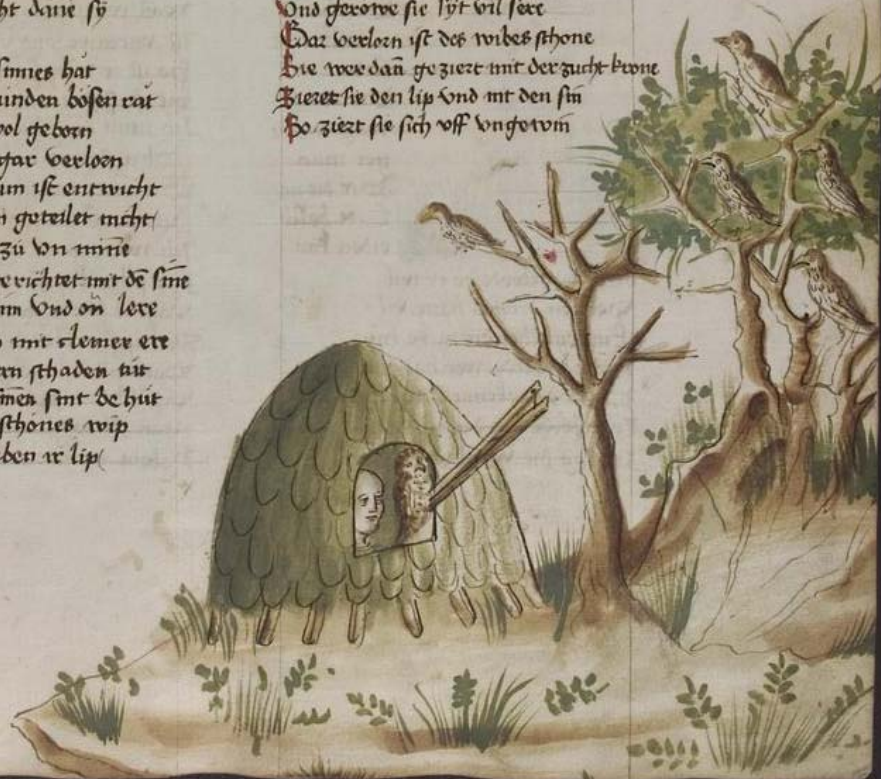 ht dane sy
sinnes hat
unden bösen rat
wol geborn
gar verlorn
um ist entwicht
n geteilet nicht
zu vn mīne
erichtet mit dē siñe
im vnd on̄ lere
mit clemer ere
rn schaden tut
nnen sint be hut
schönes wip
ben ir lip
Vnd gerowe sie lÿt vil sere
Gar verlorn ist des wibes schone
Sie wer dan̄ geziert mit der zucht krone
Zieret sie den lip vnd nt den sin
So ziert sie sich vff vngewin